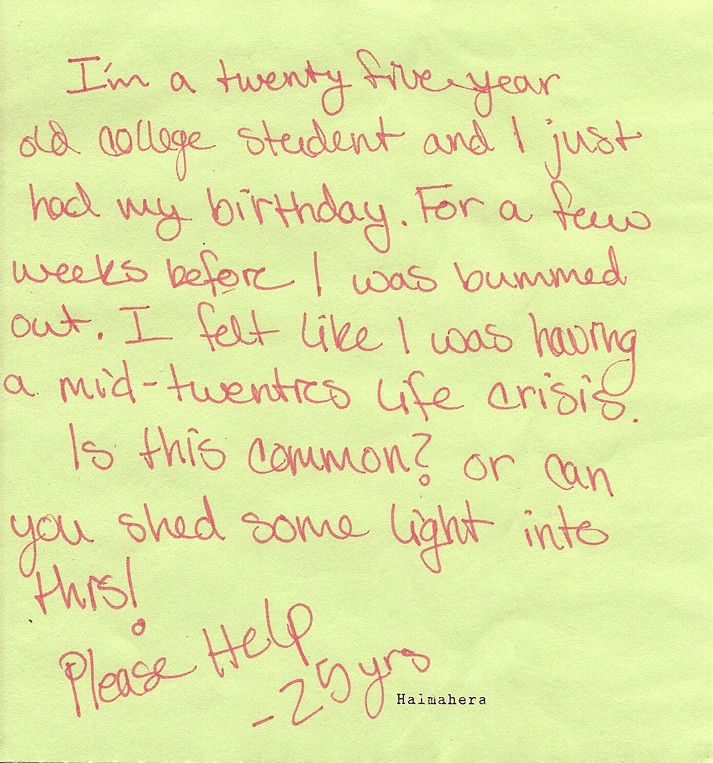 I'm a twenty five year
old college student and I just
had my birthday. For a few
weeks before I was bummed
out. I felt like I was having
a mid-twenties life crisis.
Is this common? or can
you shed some light into
this!
Please Help
-25 yrs
Haimahera